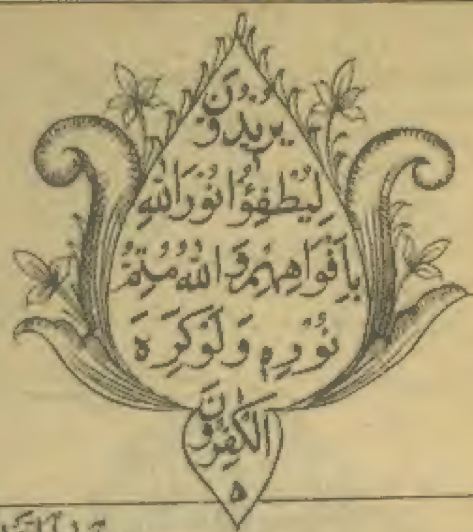 يُرِيْدُوْنَ
لِيُطْفِؤُا نُوْرَ اللّٰهِ
بِاَفْوَاهِهِمْ وَاللّٰهُ مُتِمُّ
نُوْرِهٖ وَلَوْ كَرِهَ
الْكٰفِرُوْنَ
ہ